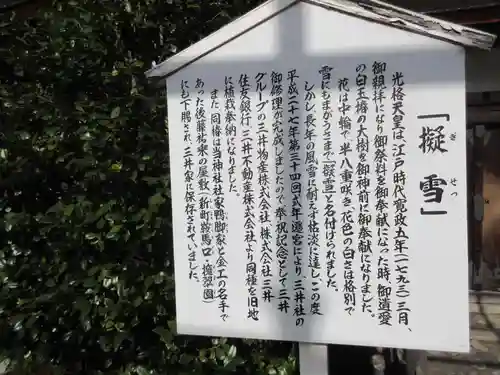 「擬雪」
ぎ せつ
光格天皇は、江戸時代寛政五年(一七九三)三月、
御親拝になり御祭料を御奉献になった時、御遺愛
の白玉椿の大樹を御神前に御奉献になりました。
花は中輪で半八重咲き、花色の白さは格別で
雪にもまがうさまで「擬雪」と名付けられました。
しかし長年の風雪に耐えず枯淡に達し、この度
平成二十七年第三十四回式年遷宮により、三井社の
御修理が完成しましたので、奉祝記念として三井
グループの三井物産株式会社、株式会社三井
住友銀行、三井不動産株式会社より同種を旧地
に植栽奉納になりました。
また、同椿は当神社社家鴨脚家と金工の名手で
あった後藤祐乗の屋敷(新町鞍馬口・擁翠園)
にも下賜され、三井家に保存されていました。